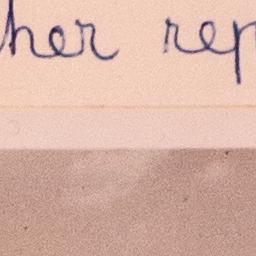 her rep